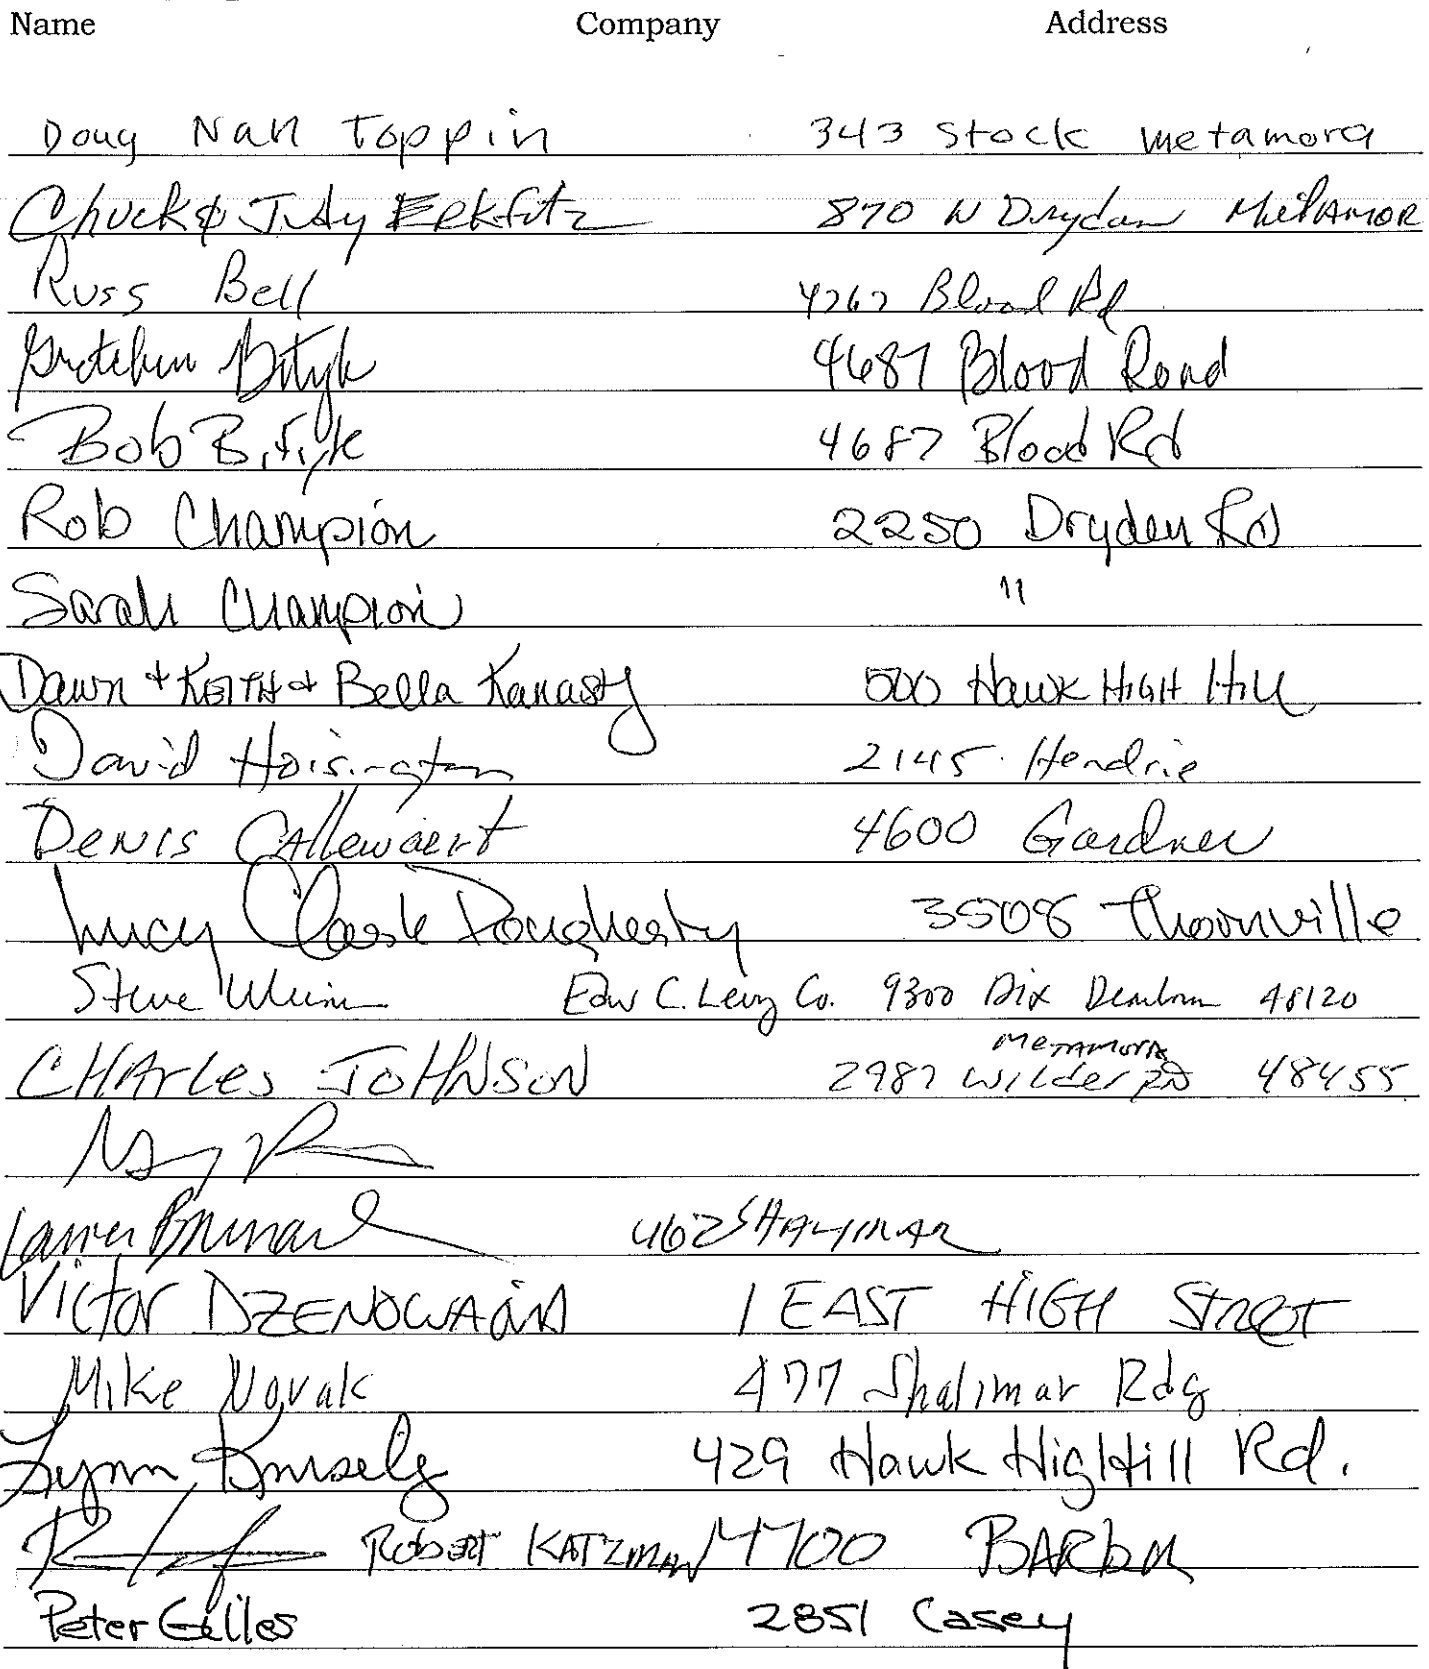 Name Company Address
Doug Nan Toppin 343 Stock Metamora
Chuck & Judy Erkfitz 870 W Dryden Metamor
Russ Bell 4267 Blood Rd
Gretchen Bityk 4687 Blood Road
Bob Bityk 4687 Blood Rd
Rob Champion 2250 Dryden Rd
Sarah Champion "
Dawn + KEITH + Bella Kanasty 500 Hawk HIGH Hill
David Hoisington 2145 Hendrie
Denis Callewaert 4600 Gardner
Lucy Clark Dougherty 3508 Thornville
Steve Edw C. Levy Co. 9300 Dix Dearborn 48120
Metamora
CHArles JOHNSON 2987 Wilder RD 48455
462 SHALIMAR
Victor 1 EAST HIGH Street
Mike Novak 477 Shalimar Rdg
Lynn 429 Hawk HigHHill Rd.
Robert KATZMAN 4700 BARber
Peter Gilles 2851 Casey